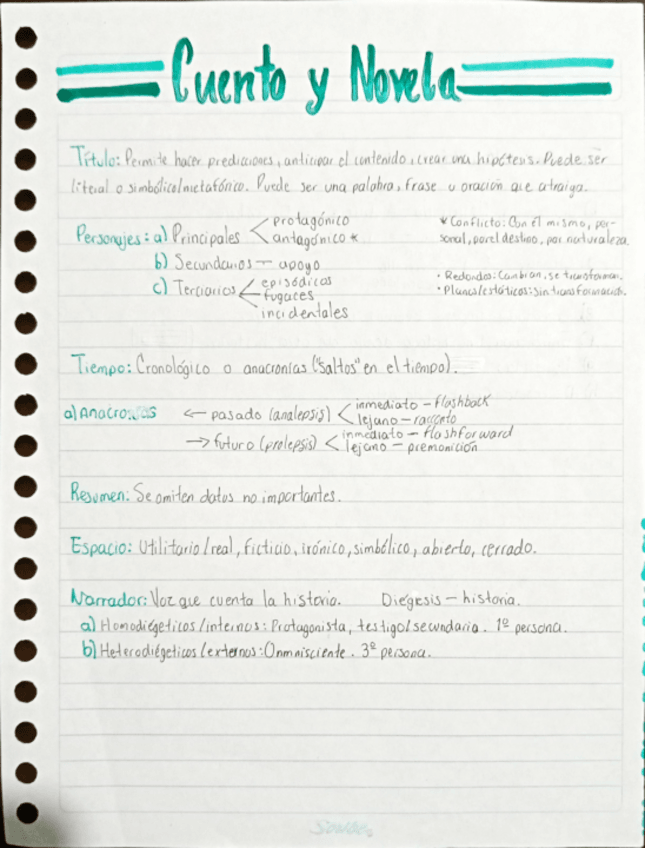 Cuento y Novela
Título: Permite hacer predicciones, anticipar el contenido, crear una hipótesis. Puede ser
literal o simbólico/metafórico. Puede ser una palabra, frase u oración que atraiga.
Personajes: a) Principales < protagónico
antagónico *
b) Secundarios — apoyo
c) Terciarios < episódicos
fugaces
incidentales
* Conflicto: Con él mismo, per-
sonal, por el destino, por naturaleza.
• Redondos: Cambian, se transforman.
• Planos/estáticos: sin transformación.
Tiempo: Cronológico o anacronías ("saltos" en el tiempo).
a) Anacronías ← pasado (analepsis) < inmediato — flashback
lejano — racconto
→ futuro (prolepsis) < inmediato — flashforward
lejano — premonición
Resumen: Se omiten datos no importantes.
Espacio: Utilitario/real, ficticio, irónico, simbólico, abierto, cerrado.
Narrador: Voz que cuenta la historia. Diégesis — historia.
a) Homodiégeticos/internos: Protagonista, testigo/secundario. 1º persona.
b) Heterodiégeticos/externos: Onmnisciente. 3º persona.